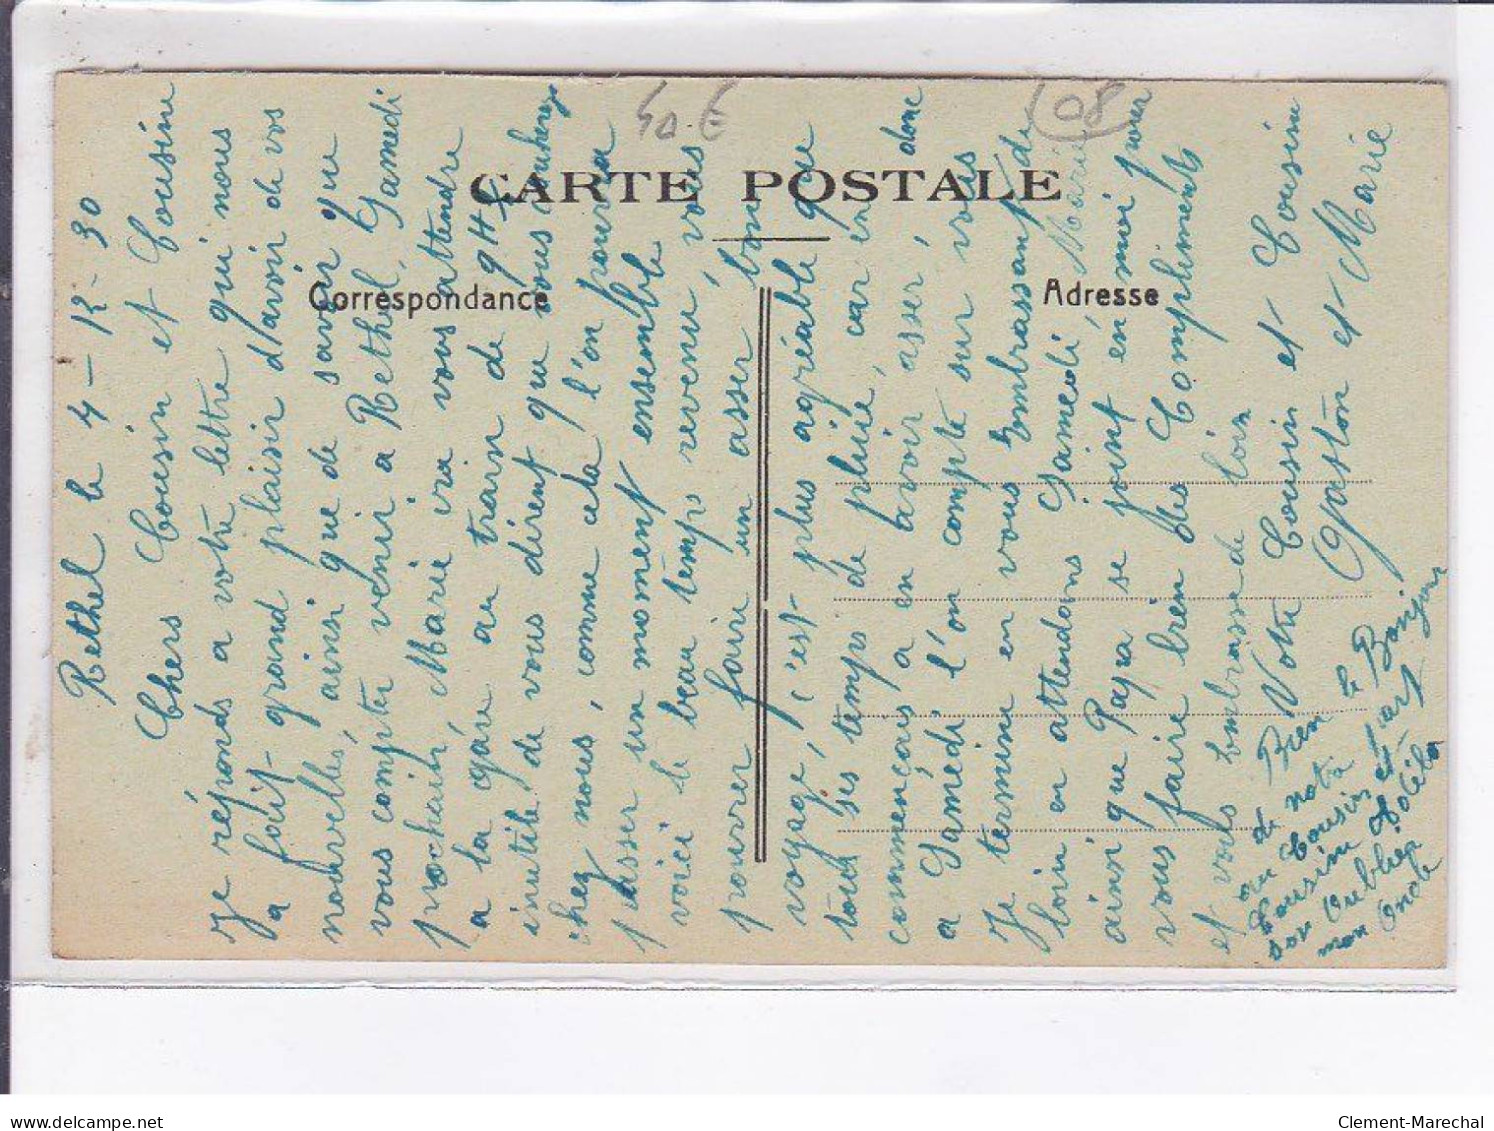 CARTE POSTALE
Correspondance
Adresse
40 €
08
Rethel le 4-12-30
Chers Cousin et Cousine
Je réponds a votre lettre qui nous
a fait grand plaisir d'avoir de vos
nouvelles, ainsi que de savoir que
vous compter venir a Rethel, Samedi
prochain, Marie ira vous attendre
a la gare au train de 9H
inutile de vous dirent que vous coucherez
chez nous, comme cela l'on pourra
passer un moment ensemble
voici le beau temps revenu, vous
pourrer faire un asser bon
voyage, c'est plus agréable que
tous ses temps de pluie, car en
commençais a en avoir asser, donc
a Samedi l'on compte sur vous
Je termine en vous Embrassant de
loin en attendons Samedi, Marie
ainsi que Papa se joint en moi pour
vous faire bien des Compliments
et vous Embrasse de loin
Votre Cousin et Cousine
Gaston et Marie
Bien le Bonjour
de notre part
au Cousin et
Cousine
son Oublier
mon Oncle
Clement-Marechal
delcampe.net